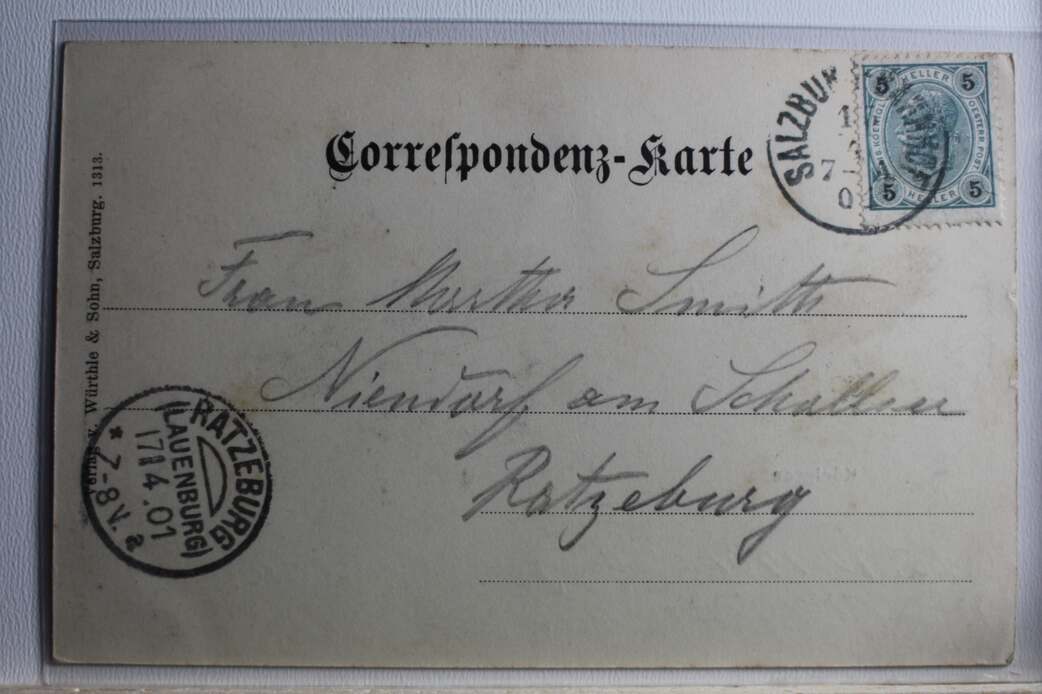 Correspondenz-Karte
SALZBU
1
7
0
5 HELLER 5
OESTERR. POST
5 HELLER 5
Frau Martha Smith
Niendorf am Schallsee
Ratzeburg
Verlag v. Würthle & Sohn, Salzburg. 1313.
RATZEBURG
(LAUENBURG)
17 4.01
* 7-8 V. a